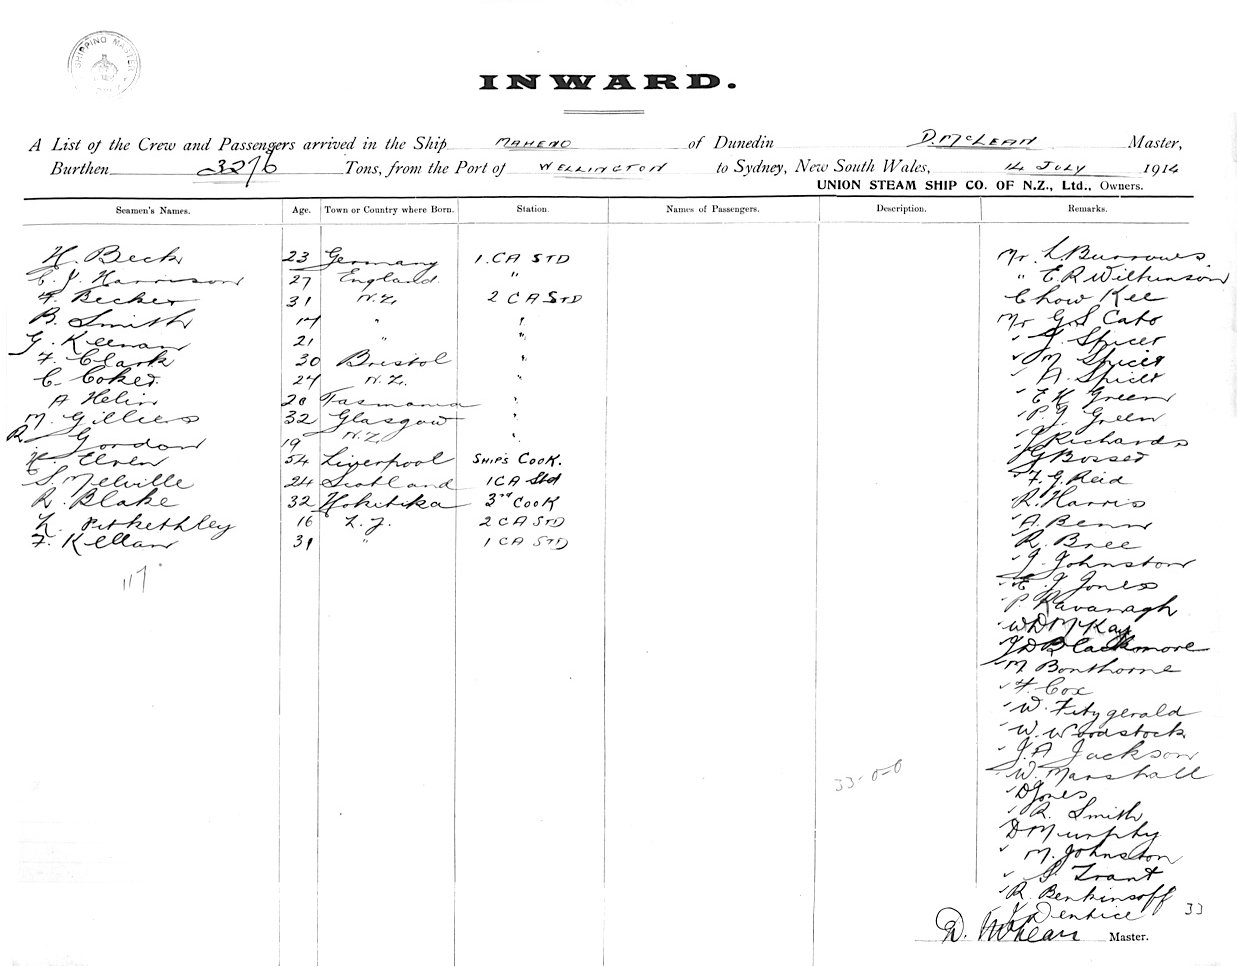 SHIPPING MASTER
INWARD.
A List of the Crew and Passengers arrived in the Ship MAHENO of Dunedin D. McLEAN Master,
Burthen 3276 Tons, from the Port of WELLINGTON to Sydney, New South Wales, 14 JULY 1914
UNION STEAM SHIP CO. OF N.Z., Ltd., Owners.
Seamen's Names. Age. Town or Country where Born. Station. Names of Passengers. Description. Remarks.
H. Beck 23 Germany 1. CA STD Mr. L. Burrows
C. J. Harrison 27 England " " E R Wilkinson
F. Becker 31 N.Z. 2 CA STD Chow Kee
B. Smith 17 " " Mr G S Cato
G. Keenan 21 " " " J. Spicer
F. Clark 30 Bristol " " M Spicer
C. Coker 24 N.Z. " " A. Spicer
A Helin 28 Tasmania " " E K Green
M. Gillies 32 Glasgow " " P. J Green
R. Gordon 19 N.Z. " " J Richards
54 Liverpool SHIP'S COOK. " G Bosser
S. Melville 24 Scotland 1 CA Std " F. G. Reid
R. Blake 32 Hokitika 3rd COOK R. Harris
L. Pitkethley 16 N.Z. 2 CA STD " A. Benn
F. Kellan 31 " 1 CA STD " R. Bree
117 " J. Johnston
" E. J Jones
" P. Kavanagh
" W D McKay
J D Blackmore
" M Bonthorne
" F. Cox
" W. Fitzgerald
" W. Woodstock
" J. A Jackson
33-0-0 " W. Marshall
" D Jones
" R. Smith
" D Murphy
" M. Johnston
" S. Trant
" R. Benkinsoff
Dentice 33
D. McLean Master.